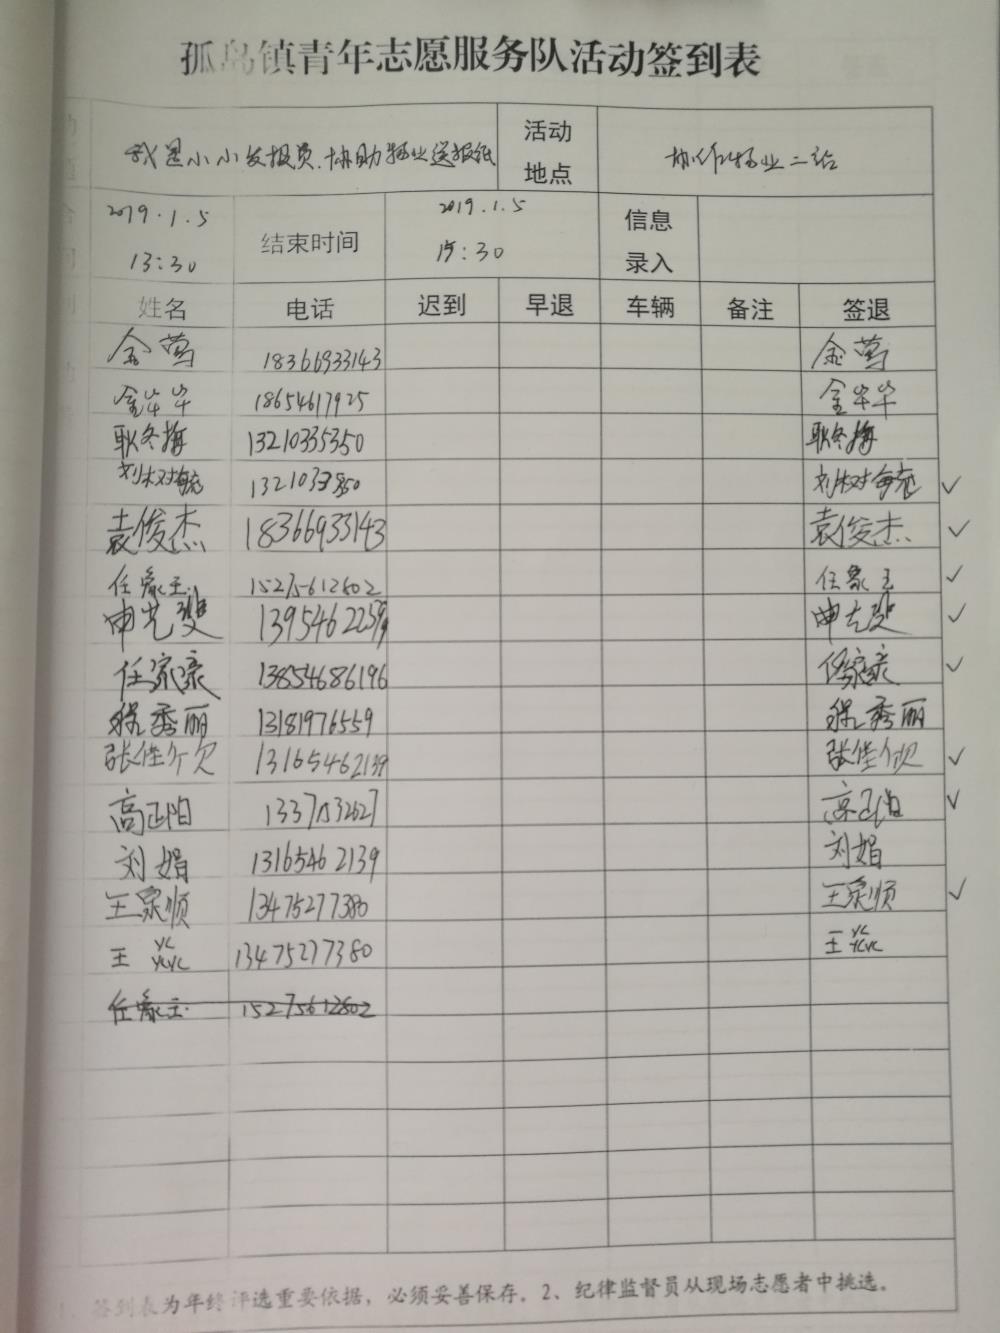 孤岛镇青年志愿服务队活动签到表
我是小小发报员.协助物业送报纸 活动地点 协作物业二站
2019.1.5 13:30 结束时间 2019.1.5 15:30 信息录入
姓名 电话 迟到 早退 车辆 备注 签退
金莺 18366933143 金莺
金华华 18654617925 金华华
耿冬梅 13210335350 耿冬梅
刘树毓 刘树毓 ✓
袁俊杰 18366933143 袁俊杰 ✓
任家玉 15275612802 任家玉 ✓
申艺斐 13954622599 申艺斐 ✓
任家豪 13854686196 任家豪 ✓
程秀丽 13181976559 程秀丽
张佳欣 13165462139 张佳欣 ✓
高正阳 高正阳 ✓
刘娟 13165462139 刘娟
王泉顺 13475277380 王泉顺 ✓
王 13475277380 王
任家玉 15275612802
1、签到表为年终评选重要依据，必须妥善保存。2、纪律监督员从现场志愿者中挑选。